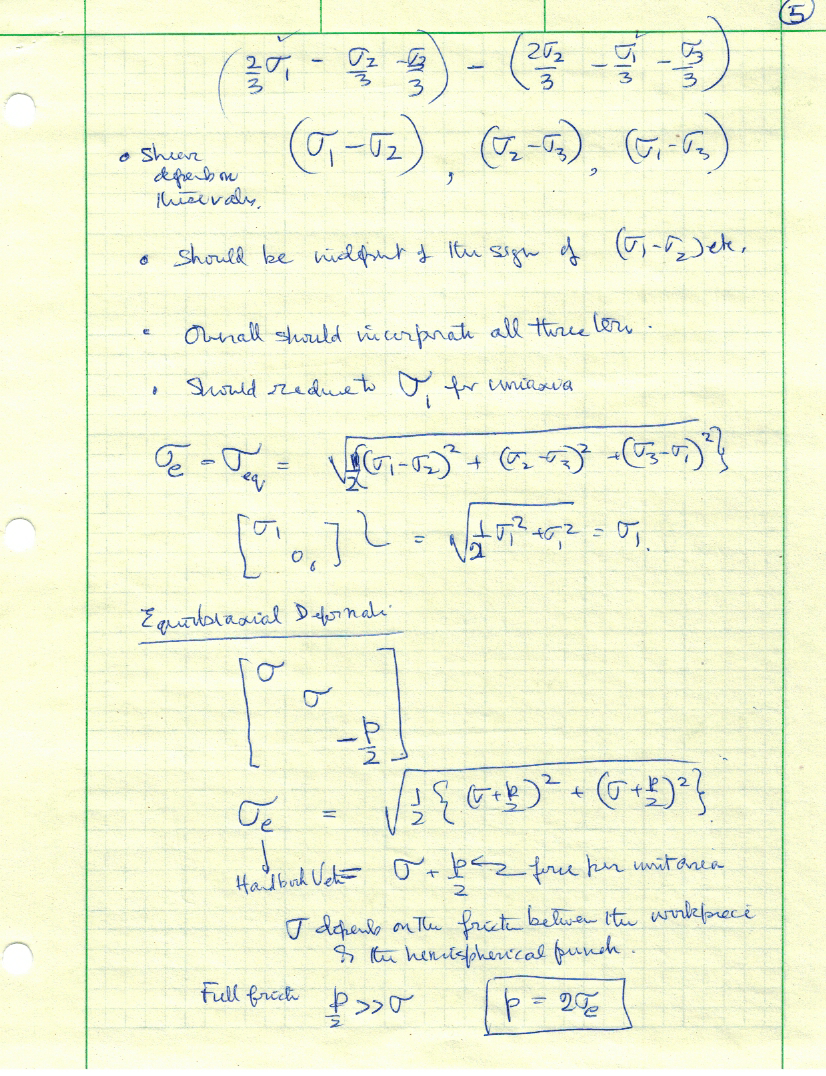 5
(2/3 σ₁ - σ₂/3 - σ₃/3) - (2σ₂/3 - σ₁/3 - σ₃/3)
• Shear (σ₁-σ₂), (σ₂-σ₃), (σ₁-σ₃)
depends on
these vals.
• Should be indepnt of the sign of (σ₁-σ₂) etc.
• Overall should incorporate all three
• Should reduce to σ₁ for uniaxia
σe = σeq = √(1/2{(σ₁-σ₂)² + (σ₂-σ₃)² + (σ₃-σ₁)²})
[σ₁ 0 0] = √(1/2 σ₁² + σ₁²) = σ₁.
Equibiaxial Deformati
[σ σ -p/2]
σe = √(1/2{(σ+p/2)² + (σ+p/2)²})
↓
Handbook = σ + p/2 ← force per unit area
σ depends on the frictn between the workpiece
& the hemispherical punch.
Full frictn p/2 >> σ p = 2σe